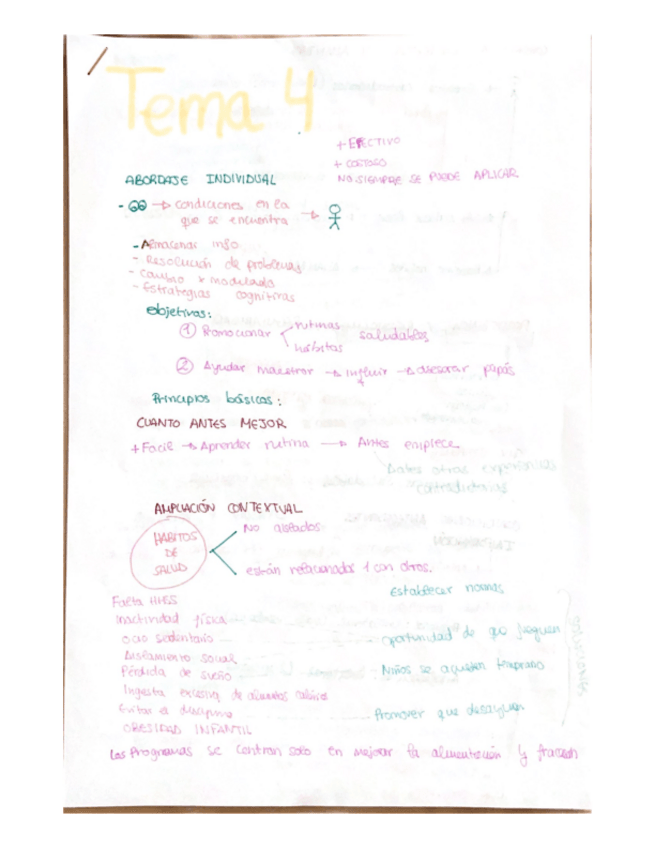 Tema 4
+ EFECTIVO
+ COSTOSO
NO SIEMPRE SE PUEDE APLICAR
ABORDAJE INDIVIDUAL
- → condiciones en la
que se encuentra →
- Almacenar info
- Resolución de problemas
- Cambio x modelado
- Estrategias cognitivas
objetivos:
① Promocionar rutinas saludables
hábitos
② Ayudar maestros → influir → asesorar papás
Principios básicos:
CUANTO ANTES MEJOR
+ Facil → Aprender rutina → Antes empiece
Antes otras experiencias
contradictorias
AMPLIACIÓN CONTEXTUAL
HABITOS DE SALUD
No aislados
están relacionados 1 con otros.
Establecer normas
Falta HHSS
Inactividad física
ocio sedentario
oportunidad de que jueguen
Aislamiento social
Pérdida de sueño
Niños se acuesten temprano
Ingesta excesiva de alimentos
Evitar el desayuno
Promover que desayunen
OBESIDAD INFANTIL
Los Programas se centran solo en mejorar la alimentación y fracasan